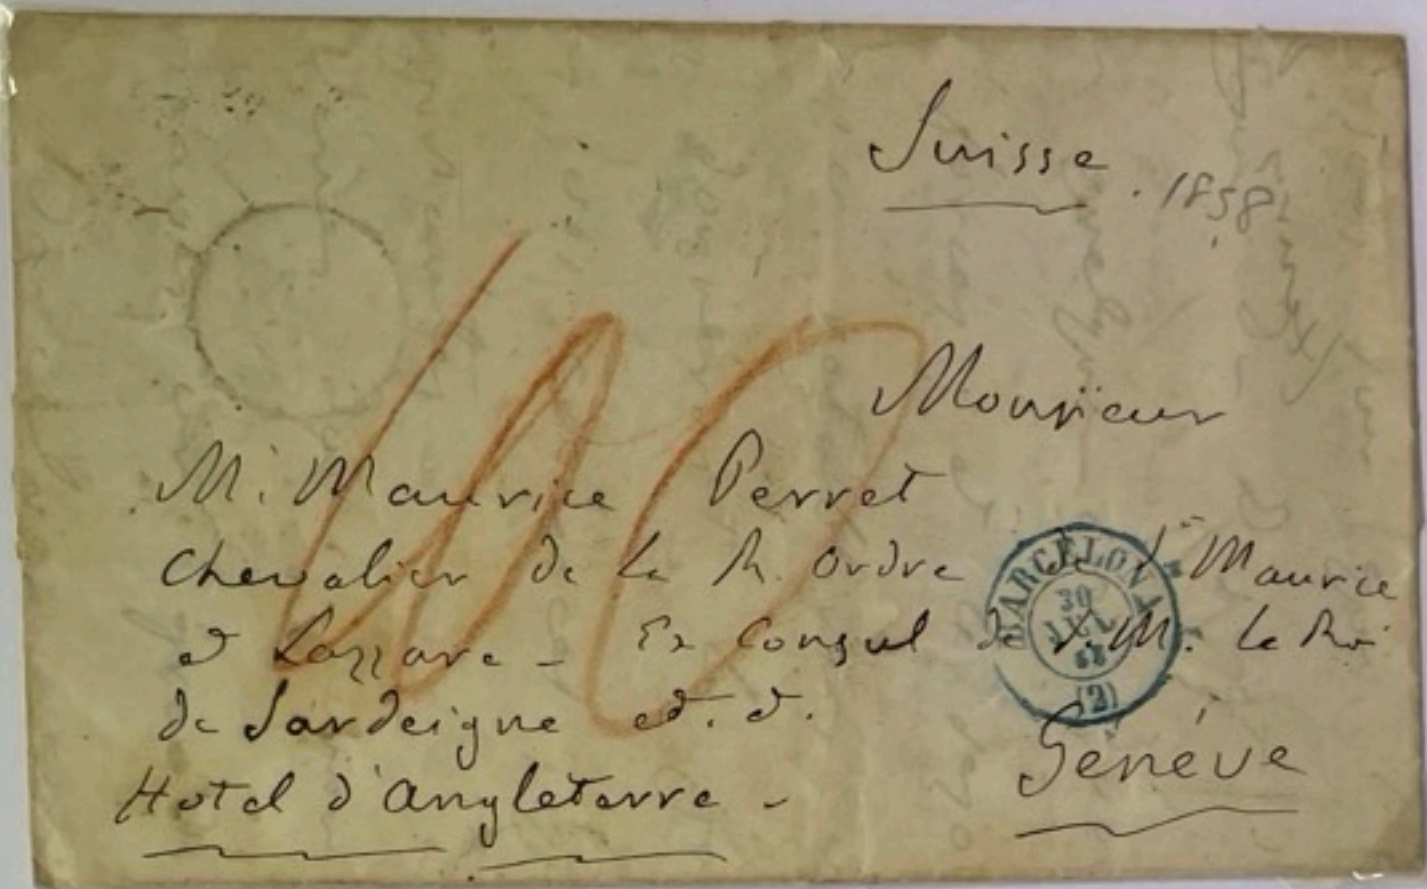 Suisse
. 1858
Monsieur
M. Maurice Perret
Chevalier de la R. Ordre de St Maurice
et Lazzare - Ex Consul de S. M. le Roi
de Sardeigne et. et.
Hotel d'Angleterre -
Genéve
BARCELONA
30
JUL
58
(2)